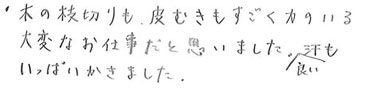 ・木の枝切りも、皮むきもすごく力のいる
大変なお仕事だと思いました。良い汗も
いっぱいかきました。